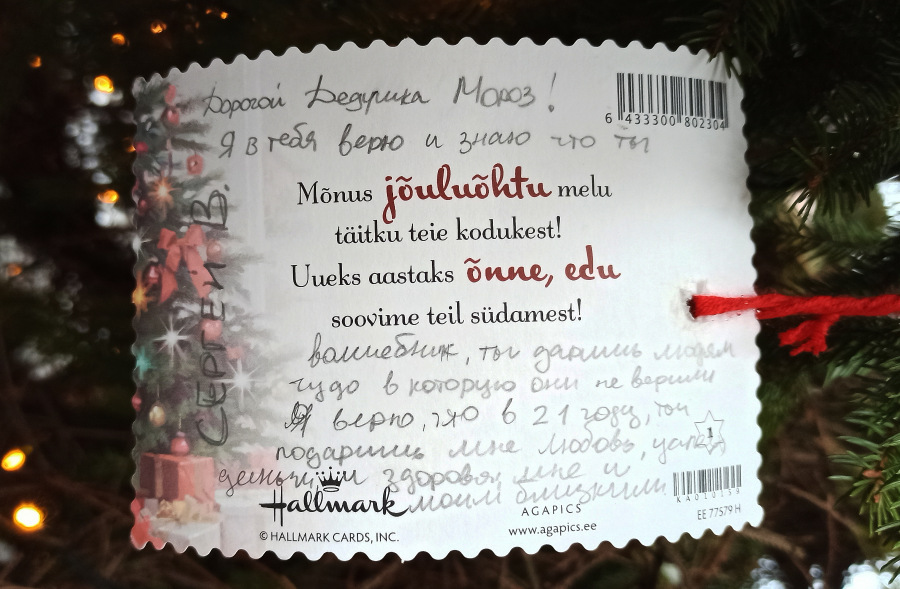 Дорогой Дедушка Мороз!
6 433300 802304
Я в тебя верю и знаю что ты
Mõnus jõuluõhtu melu
täitku teie kodukest!
Uueks aastaks õnne, edu
soovime teil südamest!
СЕРГЕЙ В.
волшебник, ты даришь людям
чудо в которую они не верили
Я верю, что в 21 году, ты
1
подаришь мне любовь,
деньги и здоровья мне и
моим близким
Hallmark
AGAPICS
KA010159
© HALLMARK CARDS, INC.
www.agapics.ee
EE 77579 H